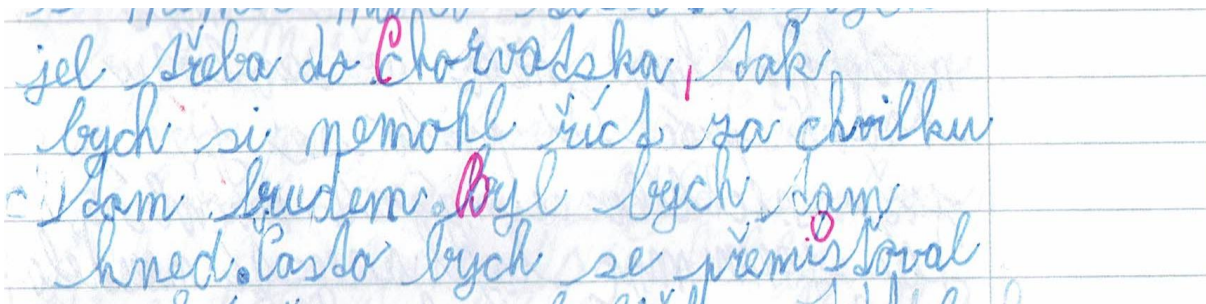 jel třeba do Chorvatska, tak
bych si nemohl říct za chvilku
tam budem. Byl bych tam
hned. Často bych se přemisťoval